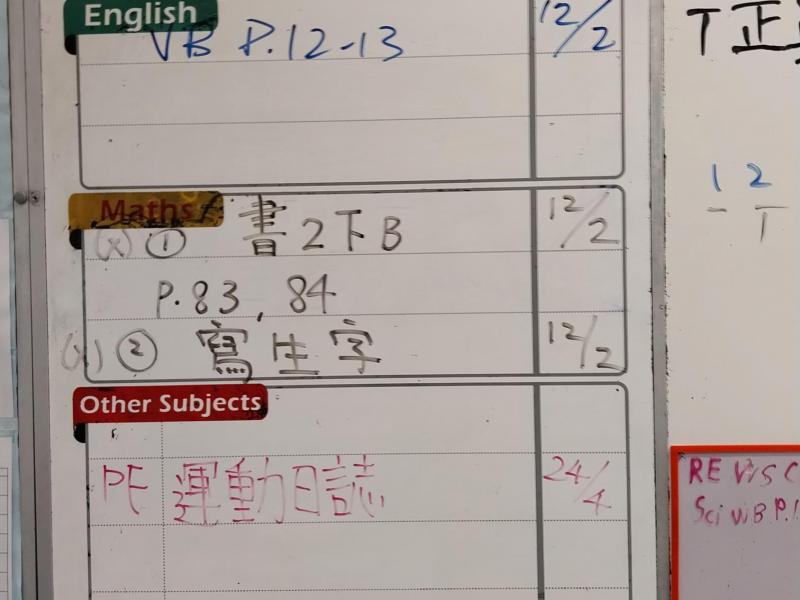 English
VB P.12-13 12/2
T 正
1 2
Maths
(x) ① 書2下B 12/2
P.83, 84
(x) ② 寫生字 12/2
Other Subjects
PE 運動日誌 24/4
RE
Sci